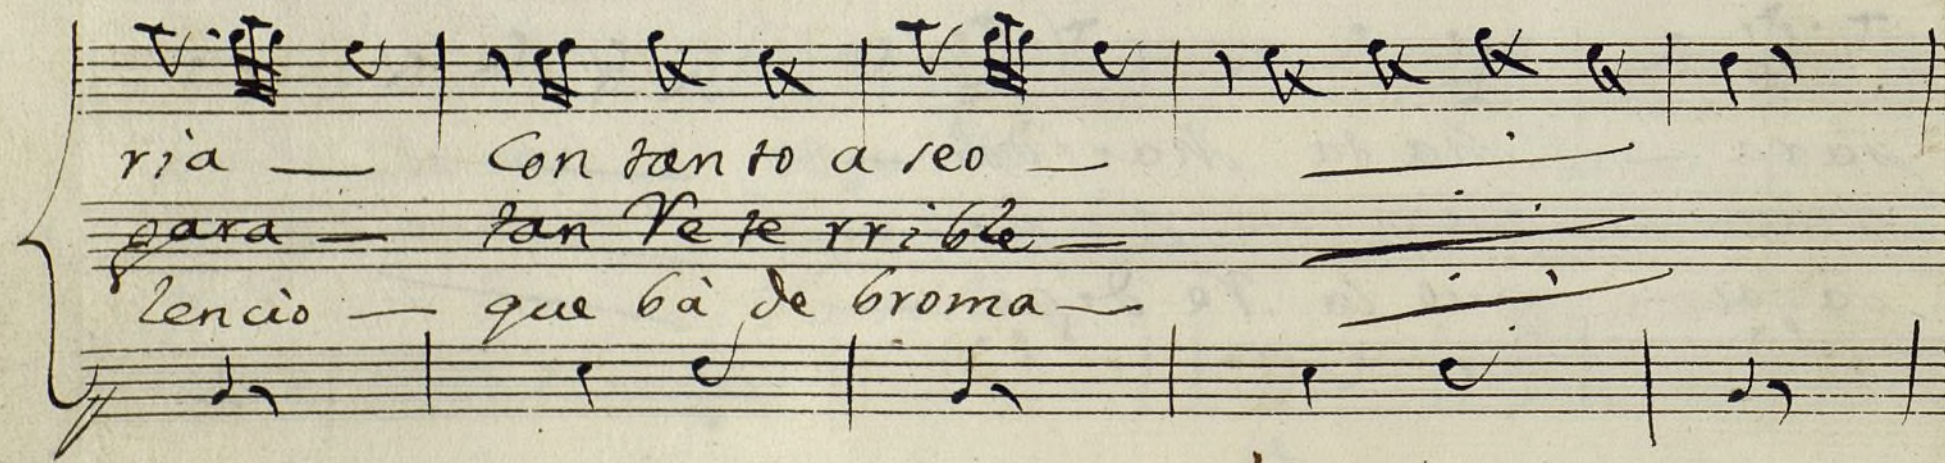 ria — Con tan to a seo —
para — tan Te te rrible —
lencio — que bà de broma —